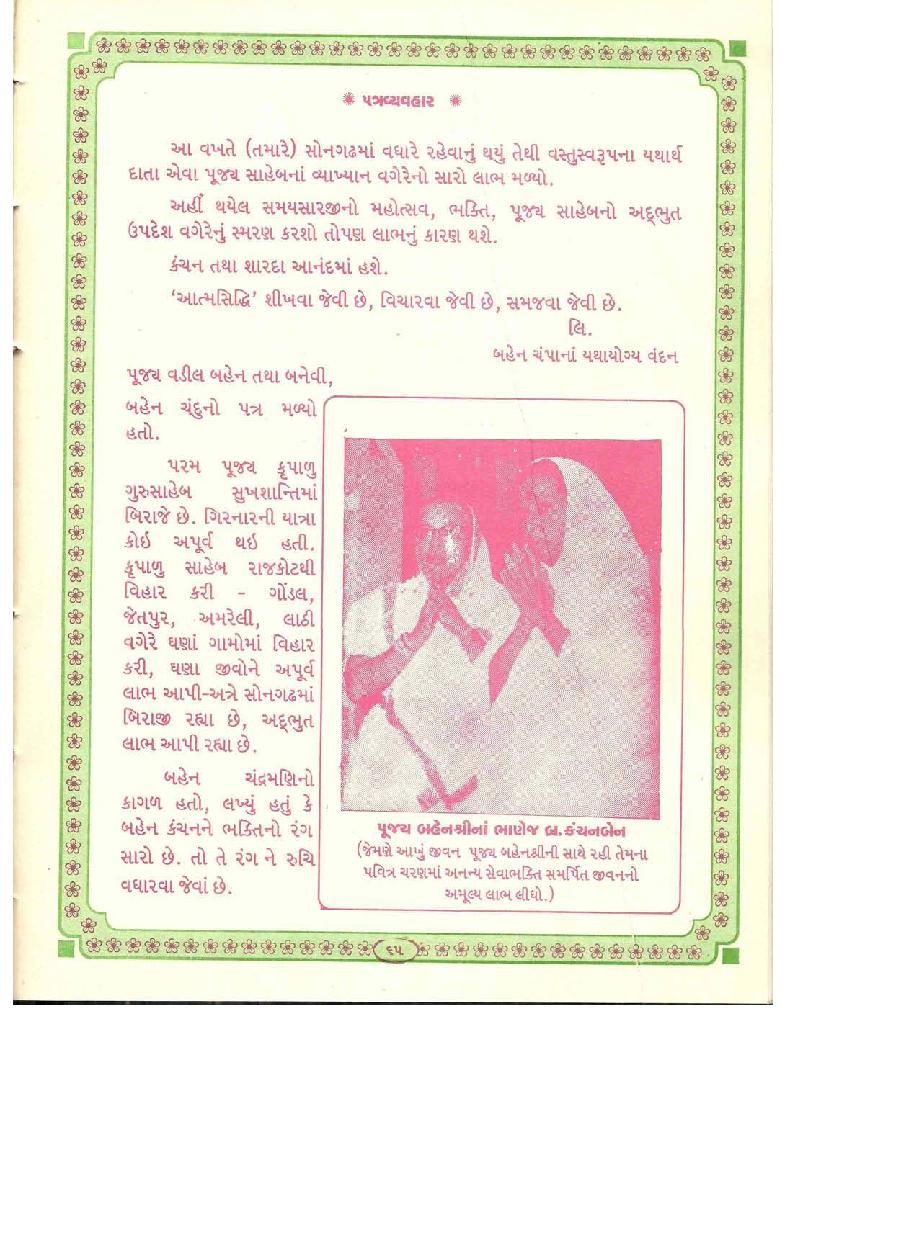 પત્રવ્યવહાર
આ વખતે (તમારે) સોનગઢમાં વધારે રહેવાનું થયું તેથી વસ્તુસ્વરૂપના યથાર્થ
દાતા એવા પૂજ્ય સાહેબનાં વ્યાખ્યાન વગેરેનો સારો લાભ મળ્યો.
અહીં થયેલ સમયસારજીનો મહોત્સવ, ભક્તિ, પૂજ્ય સાહેબનો અદ્ભુત
ઉપદેશ વગેરેનું સ્મરણ કરશો તોપણ લાભનું કારણ થશે.
કંચન તથા શારદા આનંદમાં હશે.
‘આત્મસિદ્ધિ’ શીખવા જેવી છે, વિચારવા જેવી છે, સમજવા જેવી છે.
લિ.
બહેન ચંપાનાં યથાયોગ્ય વંદન
પૂજ્ય વડીલ બહેન તથા બનેવી,
બહેન ચંદુનો પત્ર મળ્યો
હતો.
પરમ પૂજ્ય કૃપાળુ
ગુરુસાહેબ સુખશાન્તિમાં
બિરાજે છે. ગિરનારની યાત્રા
કોઇ અપૂર્વ થઇ હતી.
કૃપાળુ સાહેબ રાજકોટથી
વિહાર કરી - ગોંડલ,
જેતપુર, અમરેલી, લાઠી
વગેરે ઘણાં ગામોમાં વિહાર
કરી, ઘણા જીવોને અપૂર્વ
લાભ આપી-અત્રે સોનગઢમાં
બિરાજી રહ્યા છે, અદ્ભુત
લાભ આપી રહ્યા છે.
બહેન ચંદ્રમણિનો
કાગળ હતો, લખ્યું હતું કે
બહેન કંચનને ભક્તિનો રંગ
સારો છે. તો તે રંગ ને રુચિ
વધારવા જેવાં છે.
પૂજ્ય બહેનશ્રીનાં ભાણેજ બ્ર.કંચનબેન
(જેમણે આખું જીવન પૂજ્ય બહેનશ્રીની સાથે રહી તેમના
પવિત્ર ચરણમાં અનન્ય સેવાભક્તિ સમર્પિત જીવનનો
અમૂલ્ય લાભ લીધો.)
૬૫